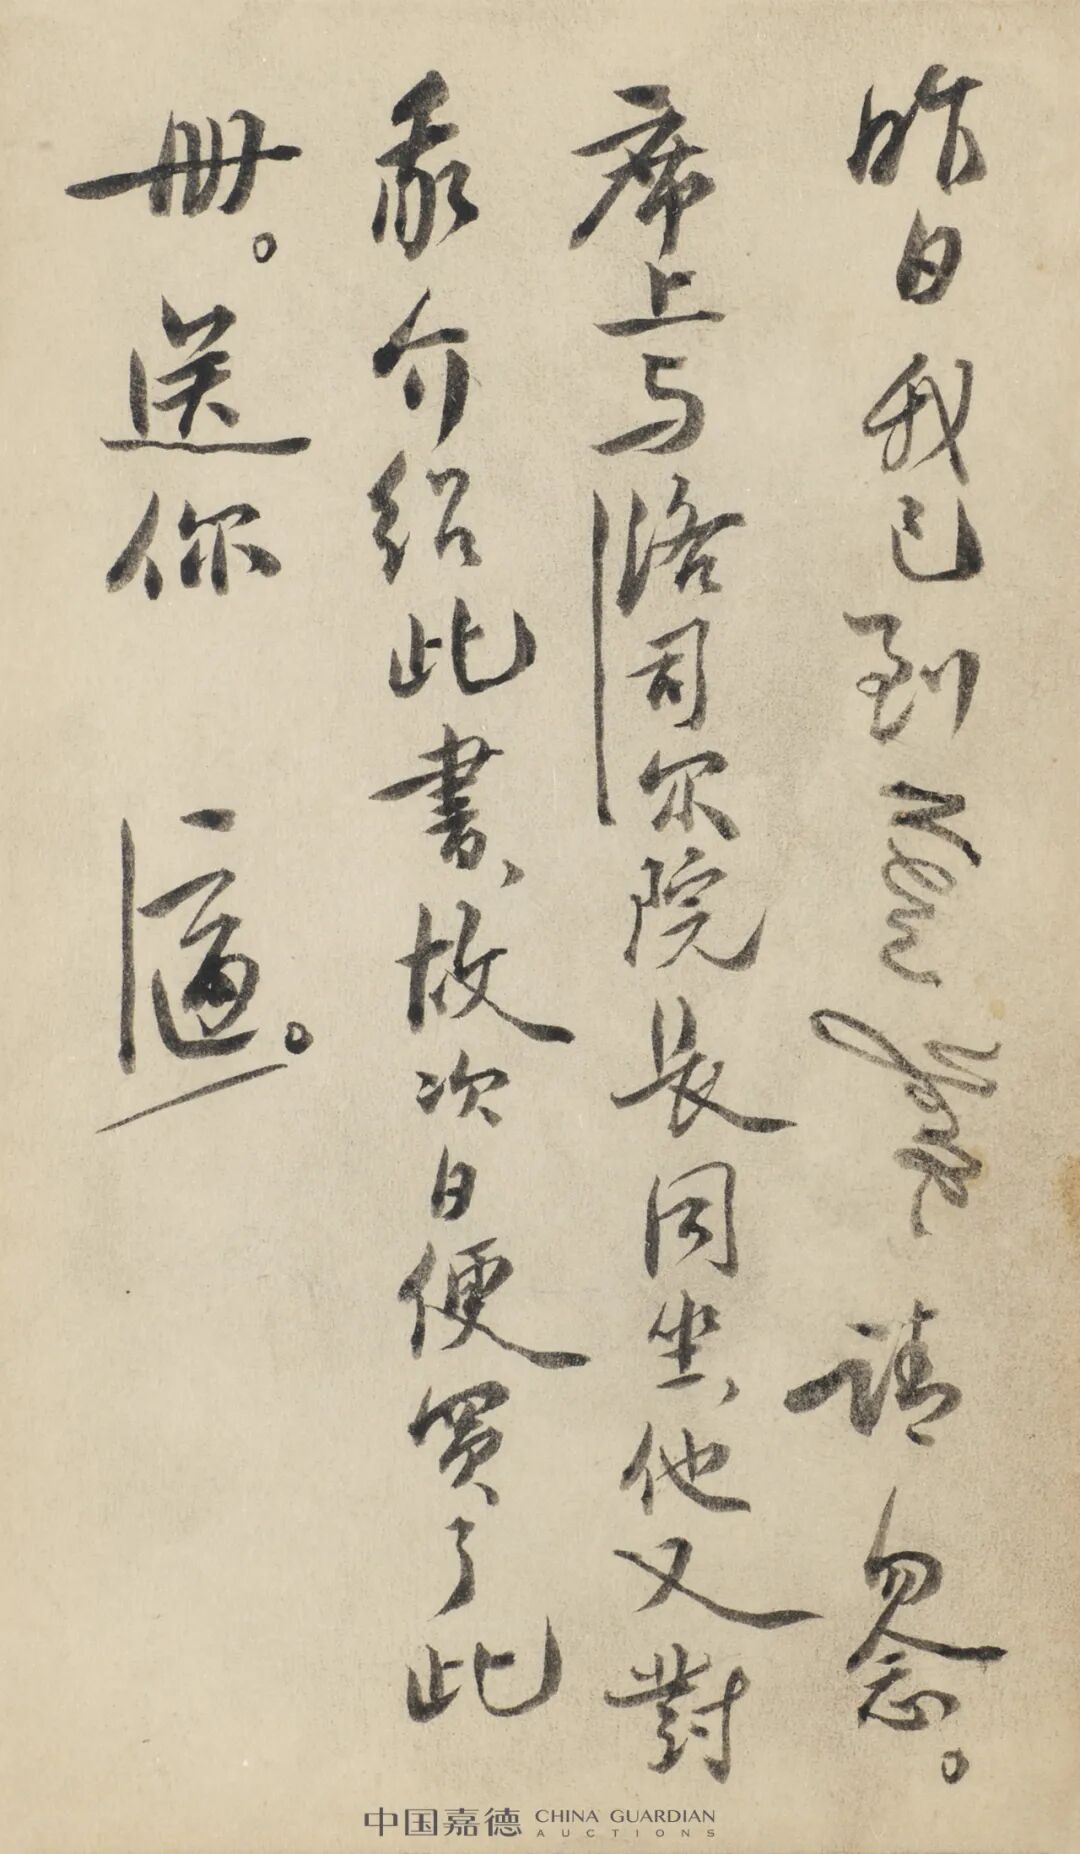 昨日我已到New York,请勿念。
席上与洛司尔院长同坐,他又對
我介绍此書,故次日便買了此
冊。送你
適。
中国嘉德 CHINA GUARDIAN
AUCTIONS